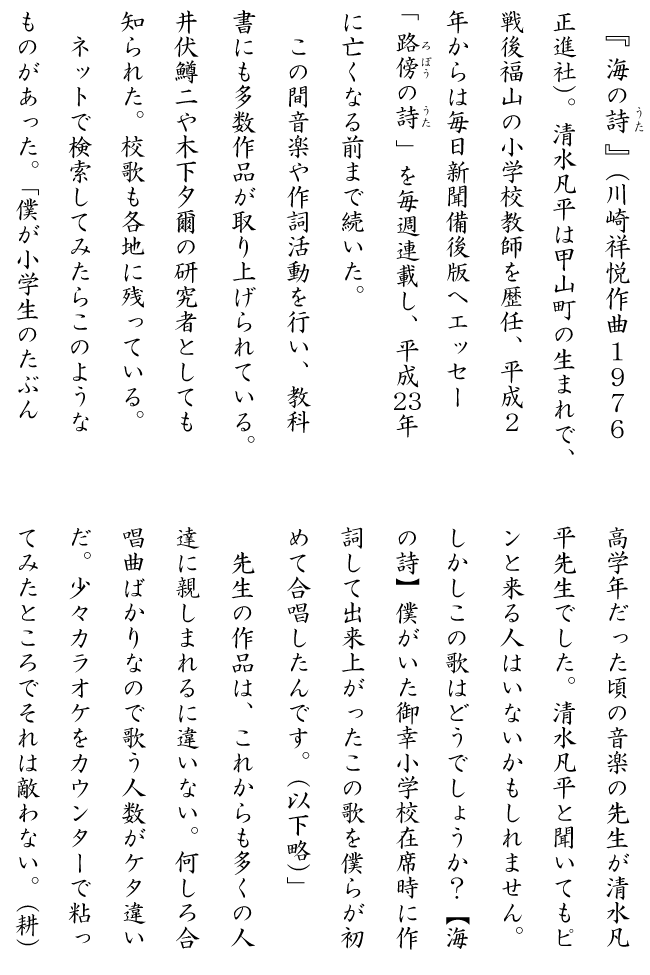 『海の詩』（川崎祥悦作曲1976
正進社）。清水凡平は甲山町の生まれで、
戦後福山の小学校教師を歴任、平成2
年からは毎日新聞備後版へエッセー
「路傍の詩」を毎週連載し、平成23年
に亡くなる前まで続いた。
この間音楽や作詞活動を行い、教科
書にも多数作品が取り上げられている。
井伏鱒二や木下夕爾の研究者としても
知られた。校歌も各地に残っている。
ネットで検索してみたらこのような
ものがあった。「僕が小学生のたぶん
高学年だった頃の音楽の先生が清水凡
平先生でした。清水凡平と聞いてもピ
ンと来る人はいないかもしれません。
しかしこの歌はどうでしょうか？【海
の詩】僕がいた御幸小学校在席時に作
詞して出来上がったこの歌を僕らが初
めて合唱したんです。（以下略）」
先生の作品は、これからも多くの人
達に親しまれるに違いない。何しろ合
唱曲ばかりなので歌う人数がケタ違い
だ。少々カラオケをカウンターで粘っ
てみたところでそれは敵わない。（耕）